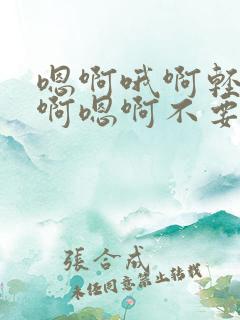 嗯啊哦啊轻
啊嗯啊不要
張合成
未任同意禁止转载